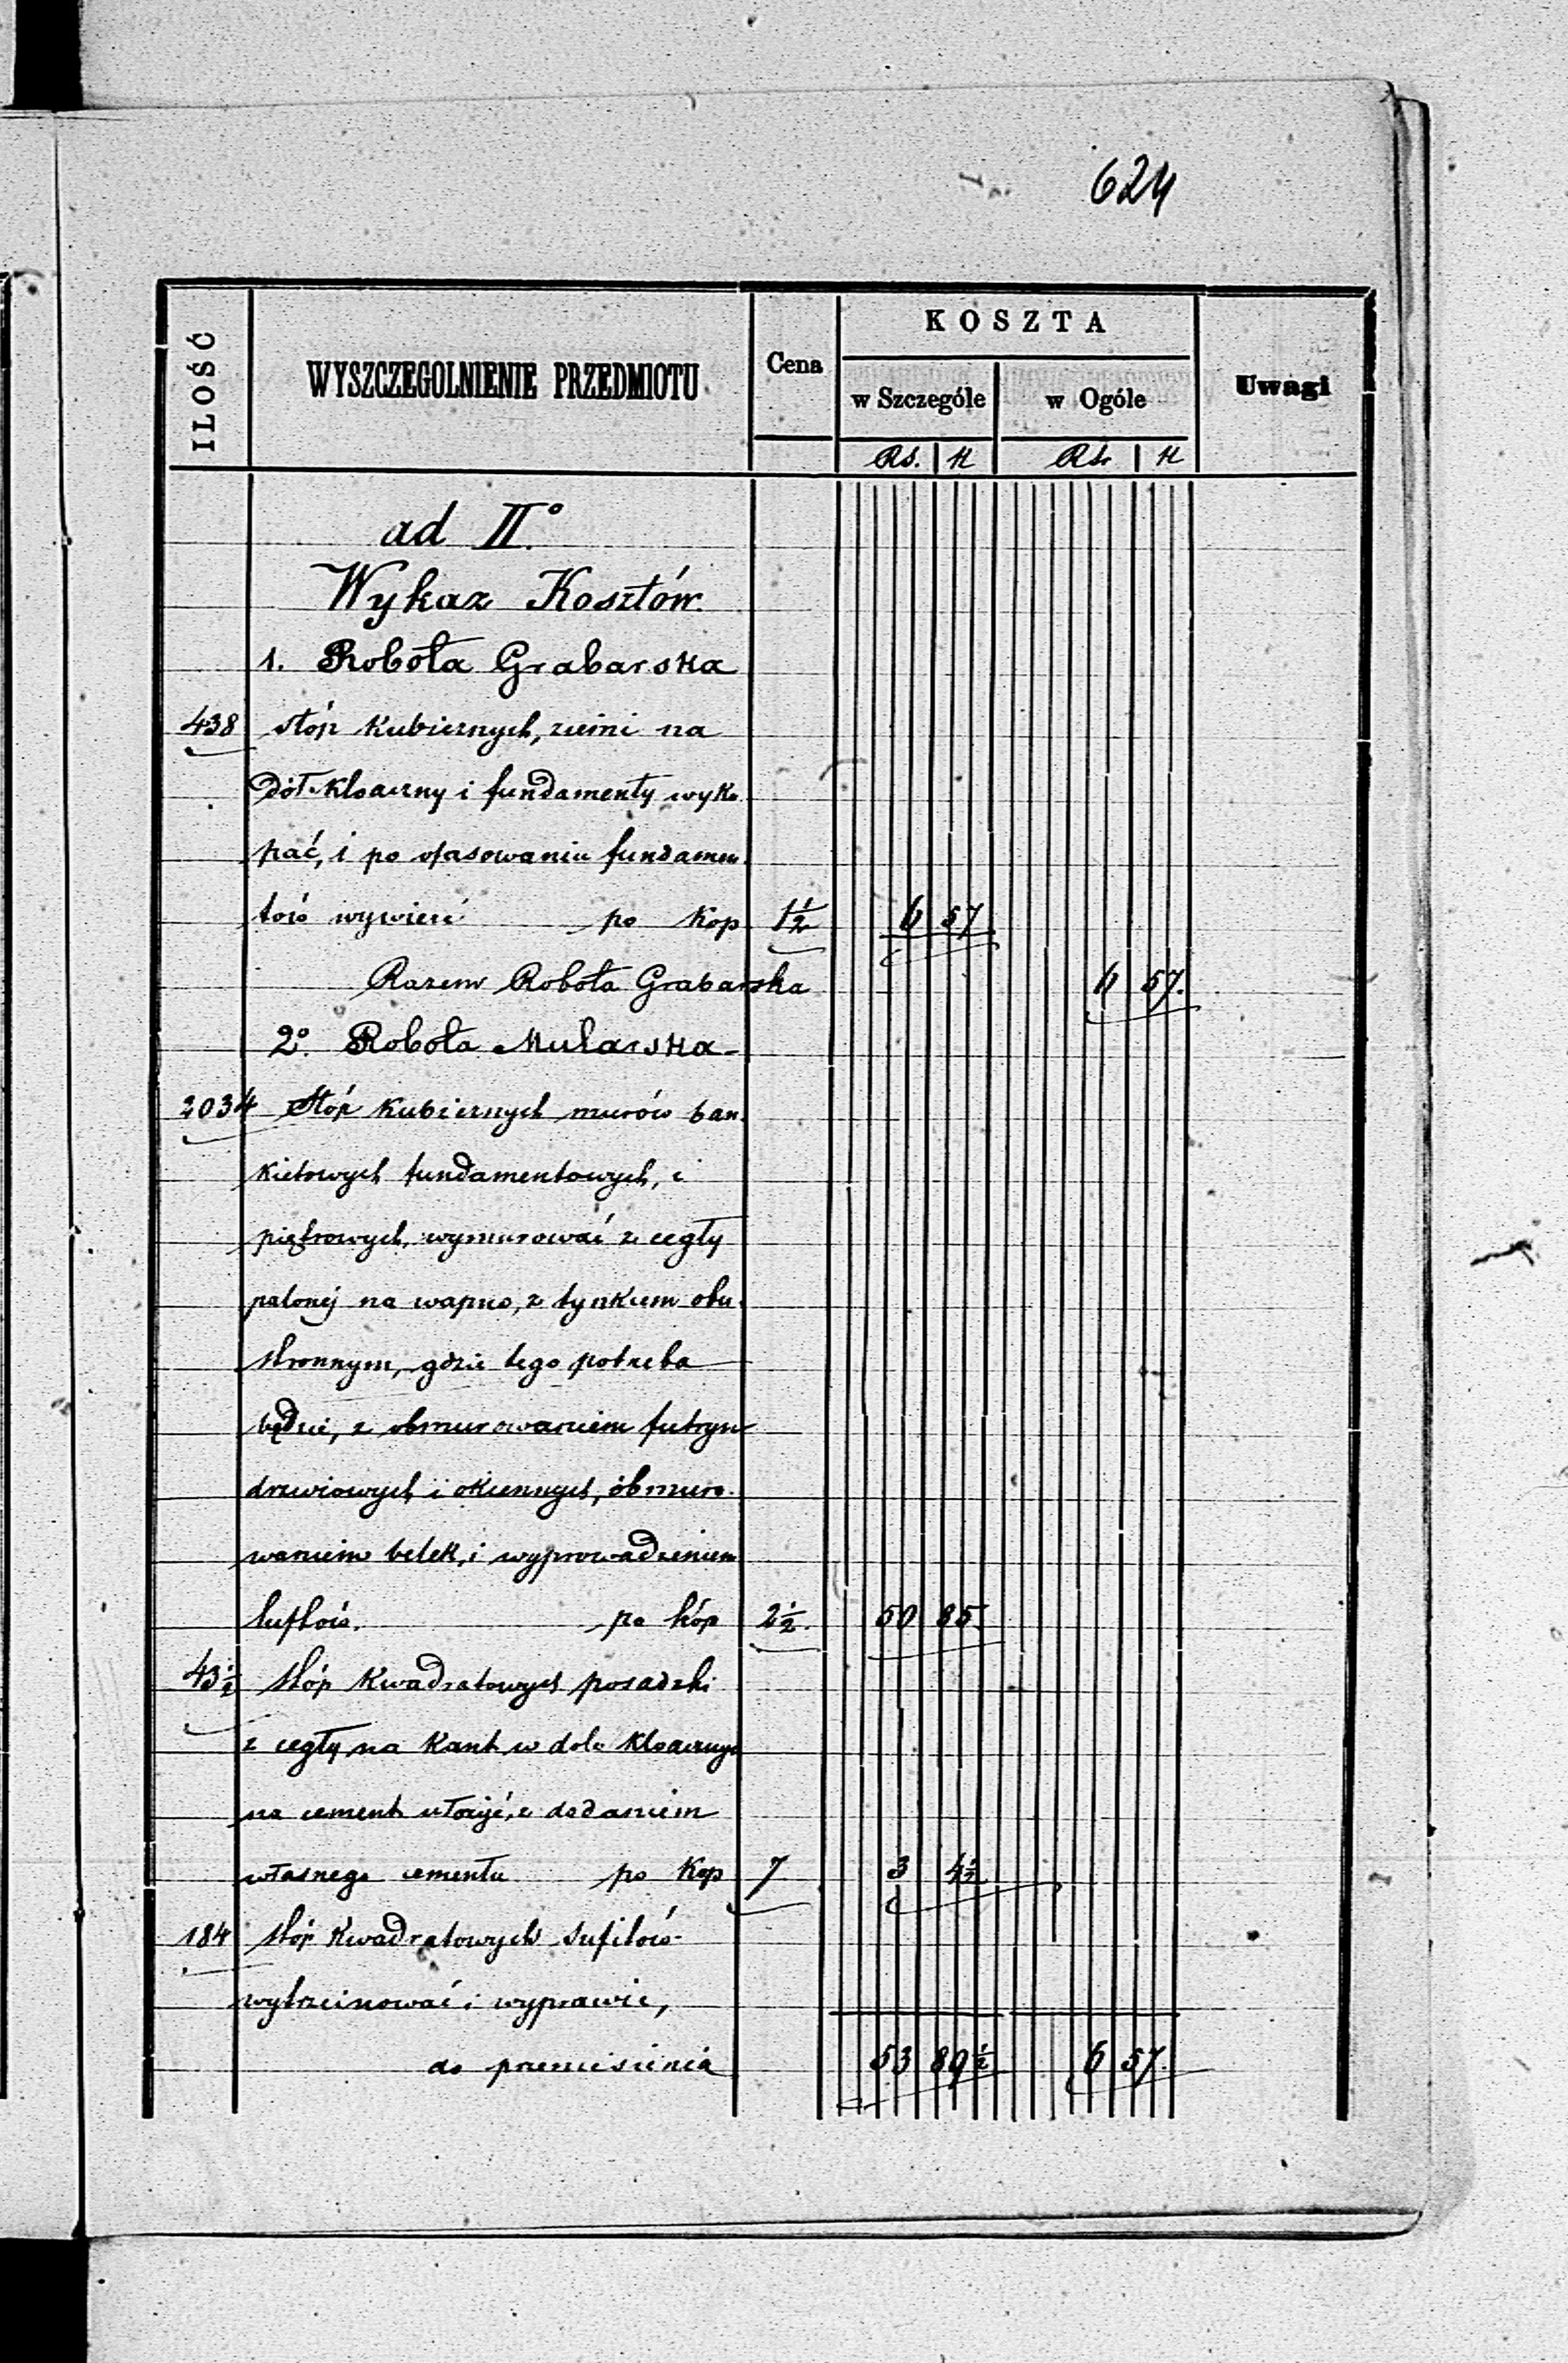 624
ILOŚĆ WYSZCZEGOLNIENIE PRZEDMIOTU Cena KOSZTA Uwagi
w Szczególe w Ogóle
Rs. K Rs. K
ad II.°
Wykaz Kosztów
1. Robota Grabarska
438 stóp kubicznych, ziemi na
dół kloaczny i fundamenty wyko
pać, i po ofasowaniu fundamen
tów wywieść po Kop 1½ 6 57
Razem Robota Grabarska 6 57.
2°. Robota Mularska
2034 Stóp kubicznych murów ban
kietowych fundamentowych, i
piętrowych, wymurować z cegły
palonej na wapno, z tynkiem obu
stronnym, gdzie tego potrzeba
będzie, z obmurowaniem futryn
drzwiowych i okiennych, obmuro
waniem belek, i wyprowadzeniem
luftów. po kóp 2½. 50 85
43½ stóp Kwadratowych posadzki
z cegły na Kant w dole kloacznym
na cement ułożyć, z dodaniem
własnego cementu po Kop 7 3 4½
184 stóp Kwadratowych sufitów
wytrzcinować i wyprawić,
do przeniesienia 53 89½ 6 57.